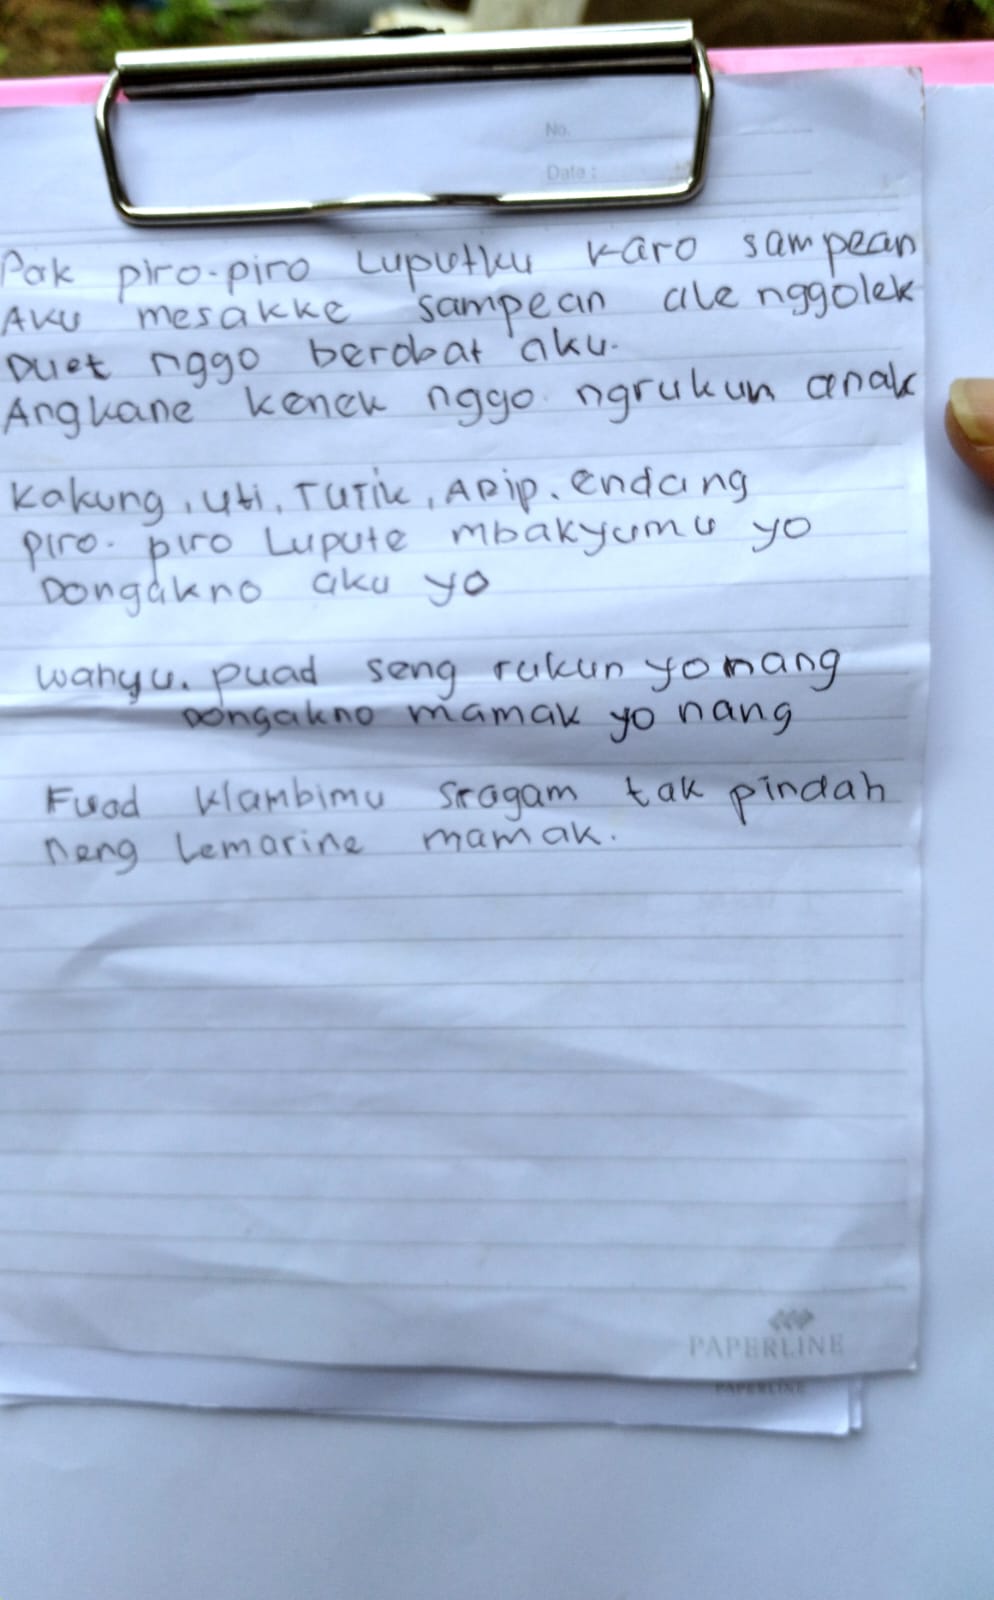 No.
Date :
Pak piro-piro Luputku karo sampean
Aku mesakke sampean ale nggolek
Duet nggo berobat aku.
Angkane kenek nggo ngrukun anak
Kakung, uti, Tutik, Apip, endang
piro-piro Lupute mbakyumu yo
Dongakno aku yo
Wahyu. puad seng rukun yo nang
Dongakno mamak yo nang
Fuad klambimu sragam tak pindah
neng Lemarine mamak.
PAPERLINE
PAPERLINE